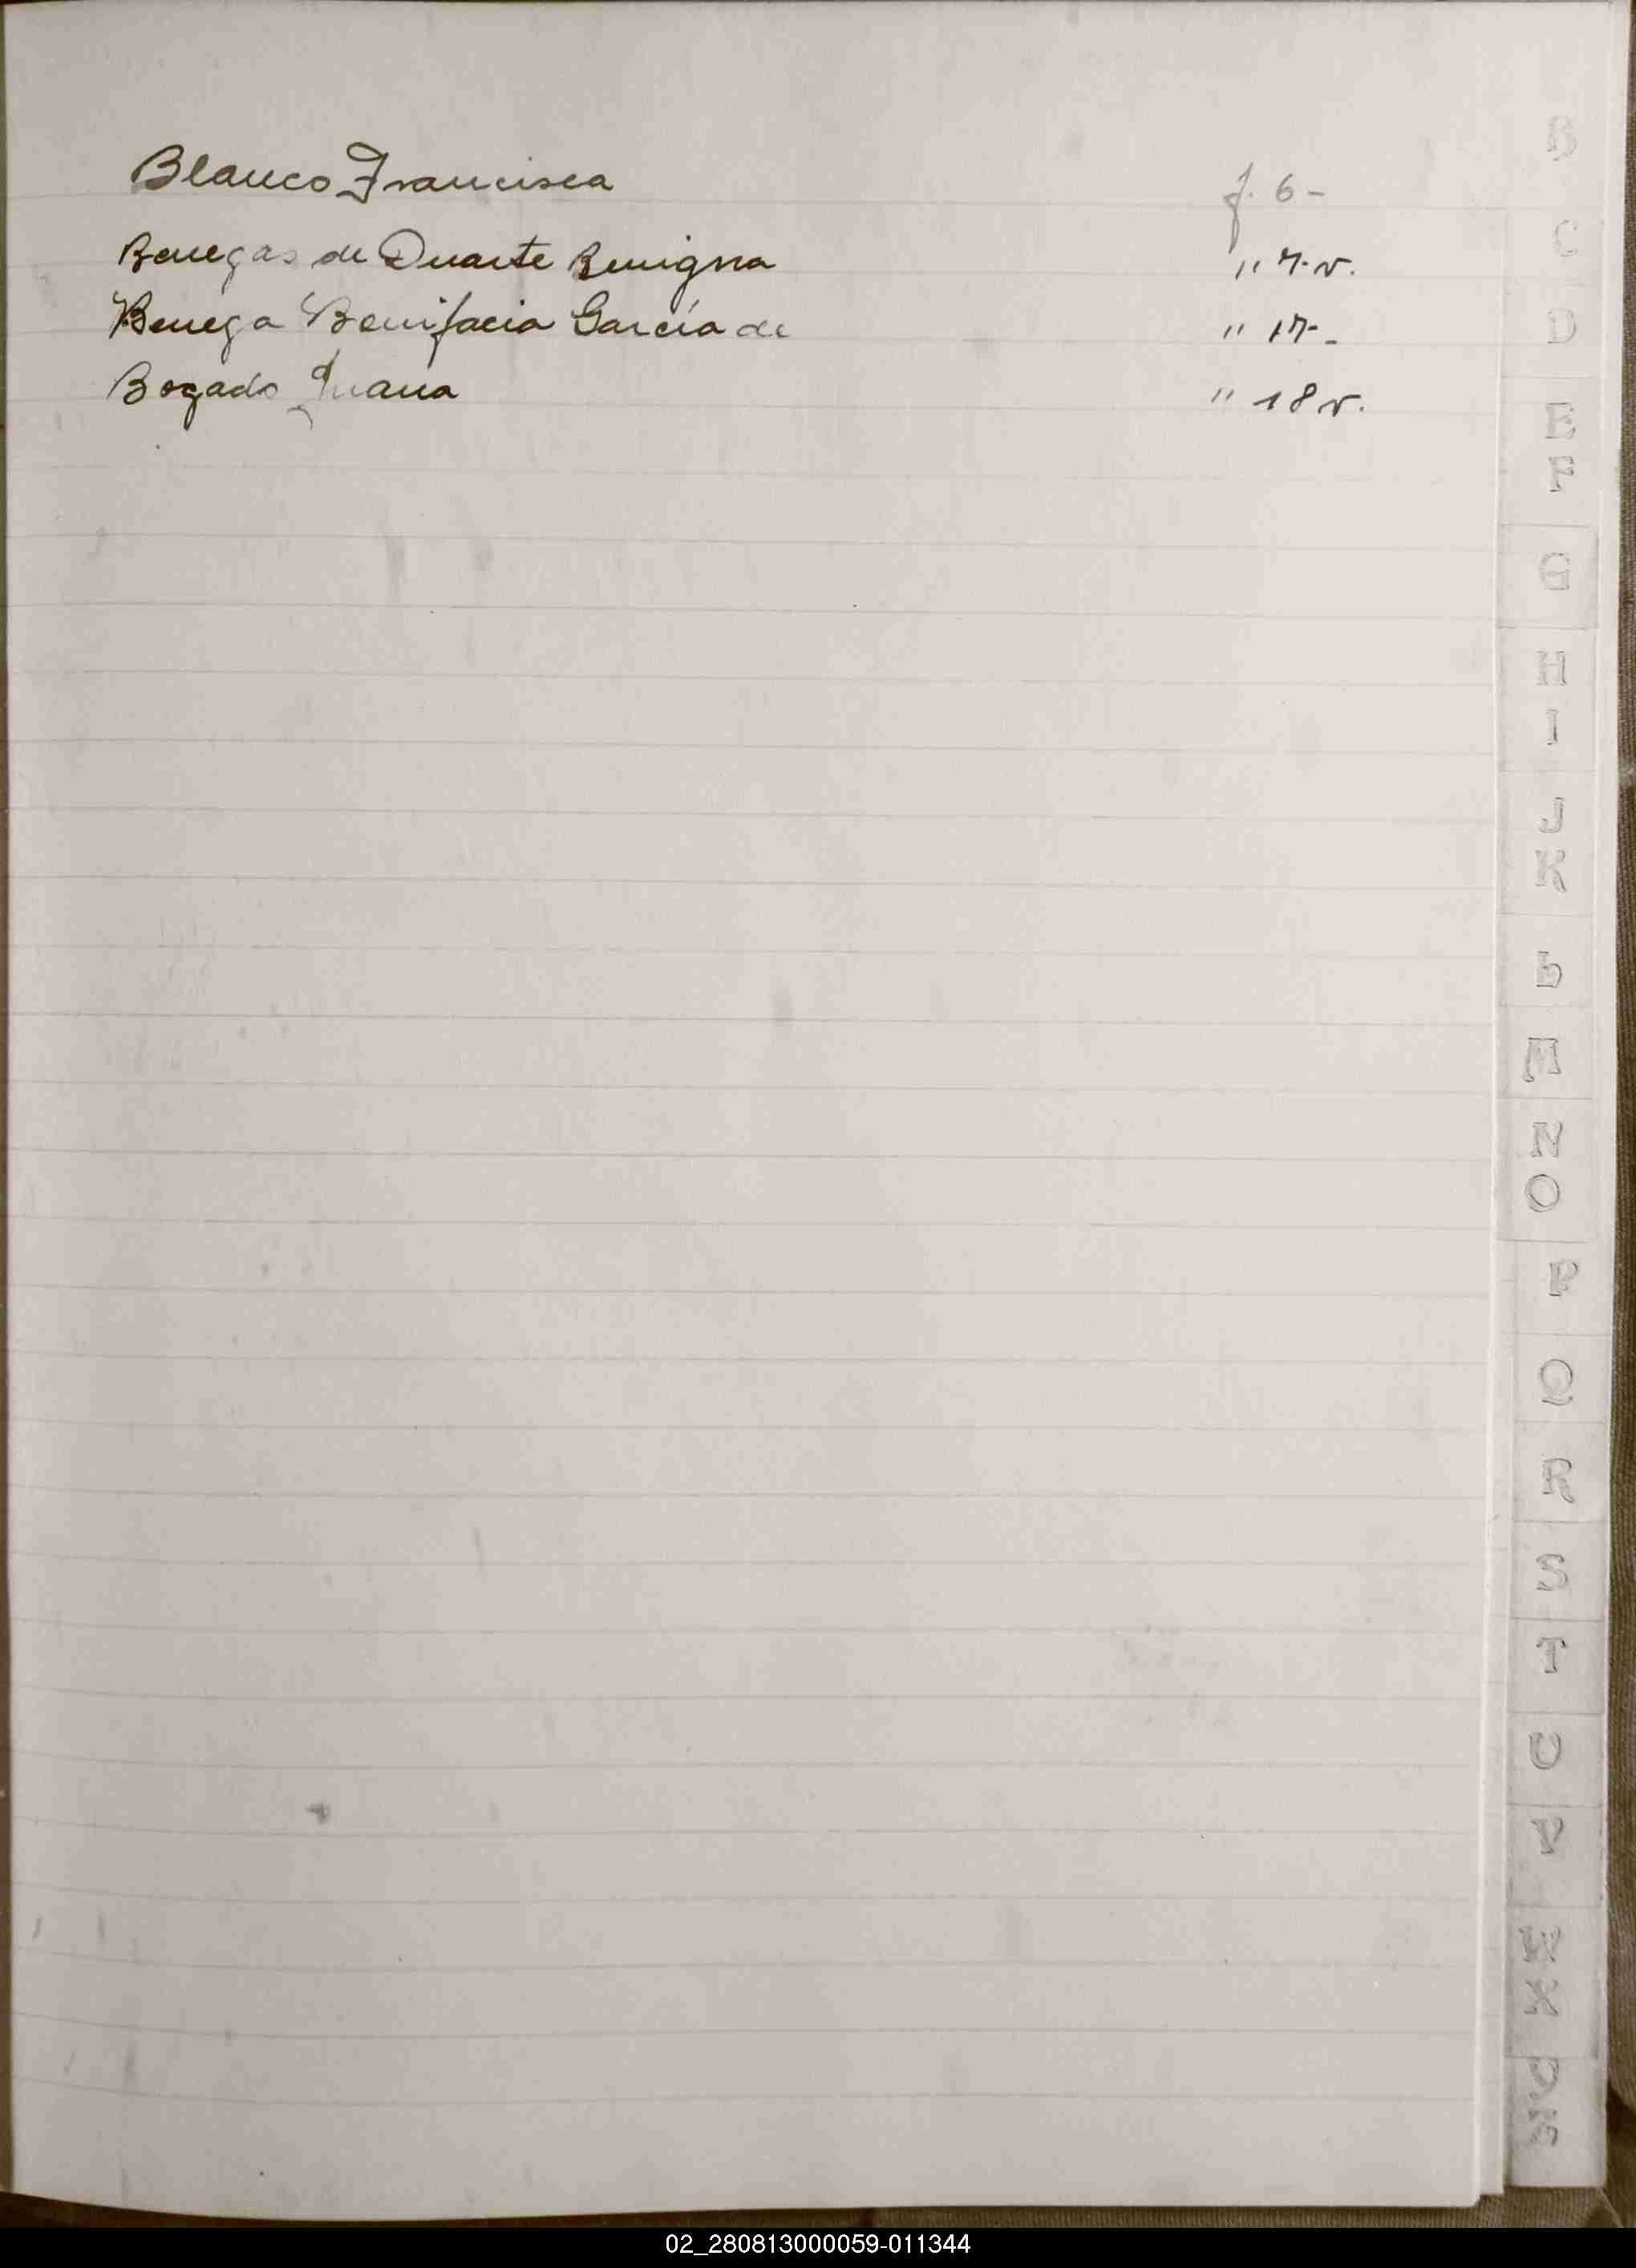 Blanco Francisca f. 6-
Benegas de Duarte Benigna " 7.v.
Benega Bonifacia García de " 17-
Bogado Juana " 18 v.
B
C
D
E
F
G
H
I
J
K
L
M
N
O
P
Q
R
S
T
U
V
W
X
Y
Z
02_280813000059-011344